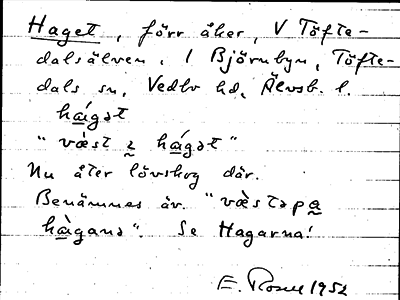 Haget, förr åker, V Töfte-
dalsälven, i Björnbyn, Töfte-
dals sn, Vedbo hd, Älvsb. l.
há̱gət
"væ̀st ɪ há̱gət"
Nu åter lövskog där.
Benämnes äv. "væ̀stəpa̰
hà̱ganə". Se Hagarna!
E. Rosell 1952